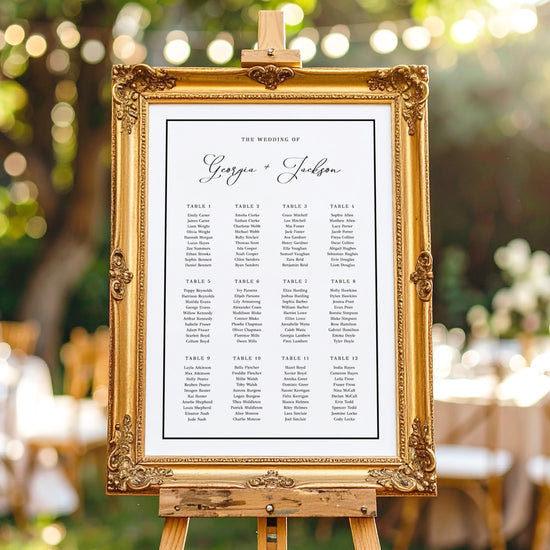 THE WEDDING OF
Georgia + Jackson
TABLE 1
Emily Carter
James Carter
Liam Wright
Olivia Wright
Hannah Morgan
Lucas Hayes
Zoe Simmons
Ethan Brooks
Sophie Bennett
Daniel Bennett
TABLE 2
Amelia Clarke
Nathan Clarke
Charlotte Webb
Michael Webb
Ruby Sinclair
Thomas Scott
Isla Cooper
Noah Cooper
Chloe Sanders
Ryan Sanders
TABLE 3
Grace Mitchell
Leo Mitchell
Mia Foster
Jack Foster
Ava Gardner
Henry Gardner
Ella Vaughan
Samuel Vaughan
Zara Reid
Benjamin Reid
TABLE 4
Sophie Allen
Matthew Allen
Lucy Porter
Daniel Porter
Freya Collins
Oscar Collins
Abigail Hughes
Sebastian Hughes
Erin Douglas
Liam Douglas
TABLE 5
Poppy Reynolds
Harrison Reynolds
Matilda Evans
George Evans
Willow Kennedy
Arthur Kennedy
Isabelle Fraser
Adam Fraser
Scarlett Boyd
Callum Boyd
TABLE 6
Ivy Parsons
Elijah Parsons
Lily Armstrong
Alexander Coam
Maddison Blake
Connor Blake
Phoebe Chapman
Oliver Chapman
Florence Mills
Owen Mills
TABLE 7
Eliza Harding
Joshua Harding
Sophia Barber
William Barber
Harriet Lowe
Elliot Lowe
Annabelle Watts
Caleb Watts
Georgia Lambert
Finn Lambert
TABLE 8
Molly Hawkins
Dylan Hawkins
Jessica Pratt
Evan Pratt
Bonnie Simpson
Blake Simpson
Rose Hamilton
Gabriel Hamilton
Emma Doyle
Tyler Doyle
TABLE 9
Layla Atkinson
Max Atkinson
Holly Pearce
Reuben Pearce
Imogen Hunter
Kai Hunter
Amelie Shepherd
Louis Shepherd
Eleanor Nash
Jude Nash
TABLE 10
Bella Fletcher
Freddie Fletcher
Millie Walsh
Toby Walsh
Lara Sinclair
Logan Sinclair
Thea Middleton
Patrick Middleton
Alice Monroe
Charlie Monroe
TABLE 11
Hazel Boyce
Xavier Boyce
Annika Greer
Dominic Greer
Naomi Kerrigan
Felix Kerrigan
Bianca Holmes
Riley Holmes
Lola Sinclair
Joel Sinclair
TABLE 12
India Hayes
Cameron Hayes
Leila Frost
Theo Frost
Nina McCall
Rory McCall
Declan McCall
Spencer Todd
Jasmine Locke
Cody Locke